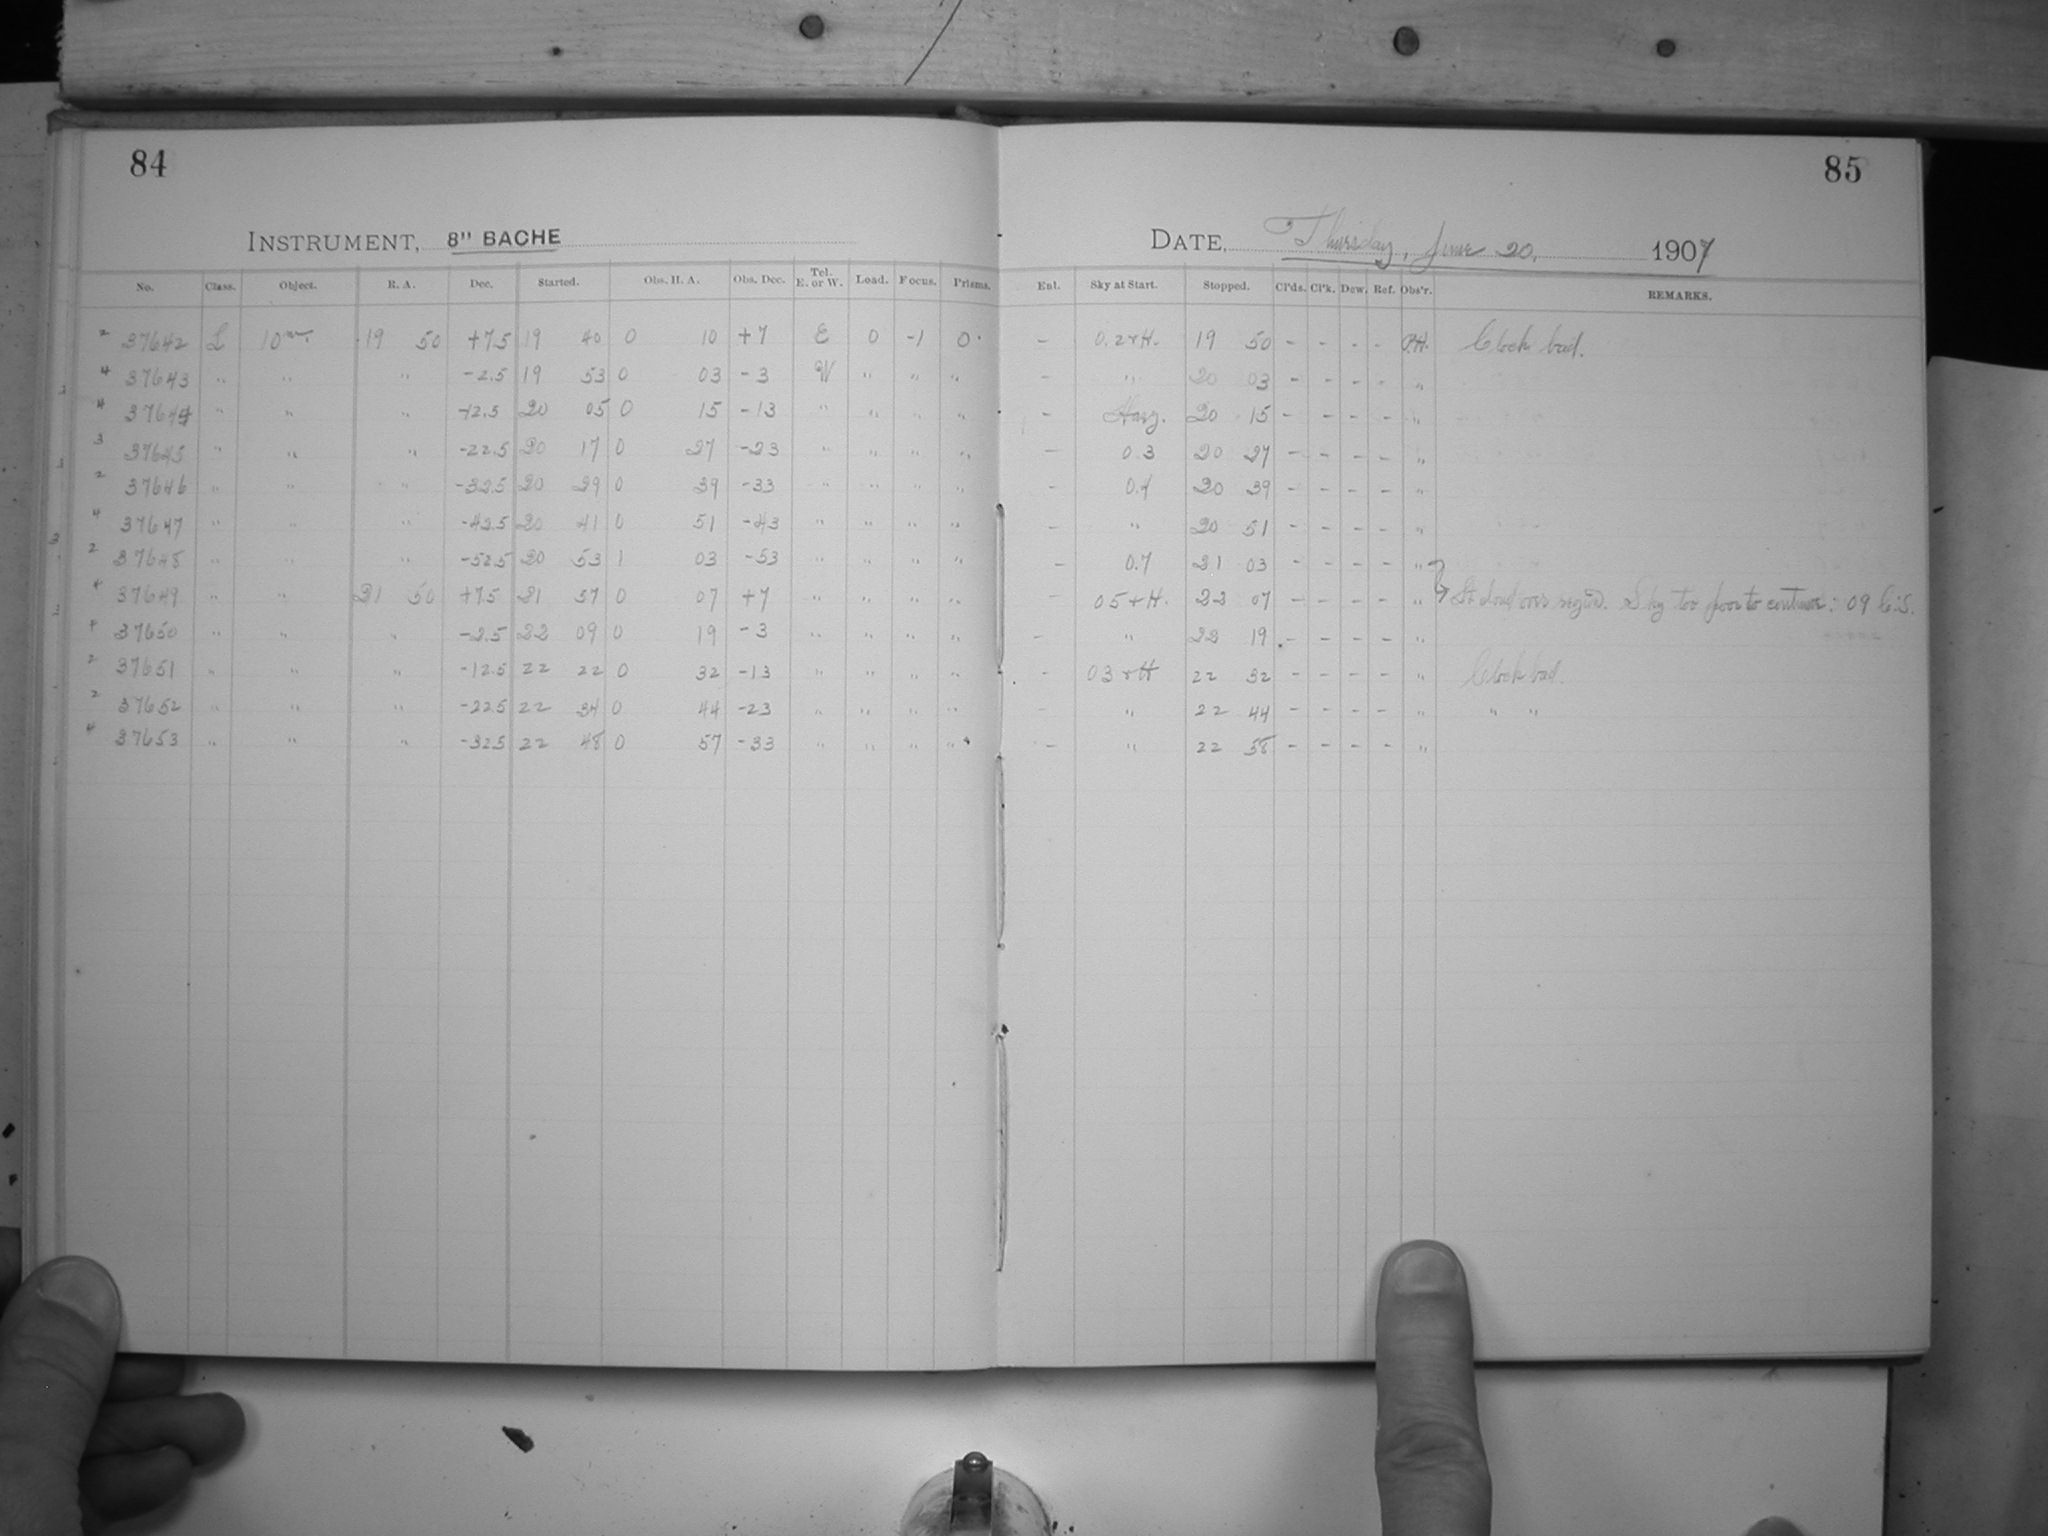 84
INSTRUMENT, 8" BACHE
No. Class. Object. R. A. Dec. Started. Obs. H. A. Obs. Dec. Tel. E. or W. Load. Focus. Prisms.
2 37642 L 10m. 19 50 +7.5 19 40 0 10 +7 E 0 -1 0.
4 37643 " " " -2.5 19 53 0 03 -3 W " " "
4 37644 " " " -12.5 20 05 0 15 -13 " " " "
3 37645 " " " -22.5 20 17 0 27 -23 " " " "
2 37646 " " " -32.5 20 29 0 39 -33 " " " "
4 37647 " " " -42.5 20 41 0 51 -43 " " " "
2 37648 " " " -52.5 20 53 1 03 -53 " " " "
4 37649 " " 21 50 +7.5 21 57 0 07 +7 " " " "
4 37650 " " " -2.5 22 09 0 19 -3 " " " "
2 37651 " " " -12.5 22 22 0 32 -13 " " " "
2 37652 " " " -22.5 22 34 0 44 -23 " " " "
4 37653 " " " -32.5 22 48 0 57 -33 " " " "
85
DATE, Thursday, June 20, 1907
Ent. Sky at Start. Stopped. Cl'ds. Cl'k. Dew. Ref. Obs'r. REMARKS.
- 0.2+H. 19 50 - - - - P.H. Clock bad.
- " 20 03 - - - - "
- Hazy. 20 15 - - - - "
- 0.3 20 27 - - - - "
- 0.4 20 39 - - - - "
- " 20 51 - - - - "
- 0.7 21 03 - - - - "
- 05+H. 22 07 - - - - " St cloud over region. Sky too poor to continue: 09 Ci.S.
- " 22 19 - - - - "
- 03+H 22 32 - - - - " Clock bad.
- " 22 44 - - - - " " "
- " 22 58 - - - - "